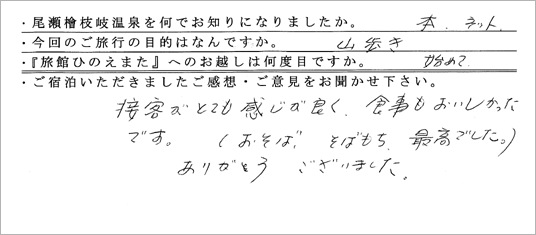 ・尾瀬檜枝岐温泉を何でお知りになりましたか。 本、ネット、
・今回のご旅行の目的はなんですか。 山歩き
・『旅館ひのえまた』へのお越しは何度目ですか。 始めて
・ご宿泊いただきましたご感想・ご意見をお聞かせ下さい。
接客がとても感じが良く、食事もおいしかった
です。 (おそば、そばもち、最高でした。)
ありがとう ございました。